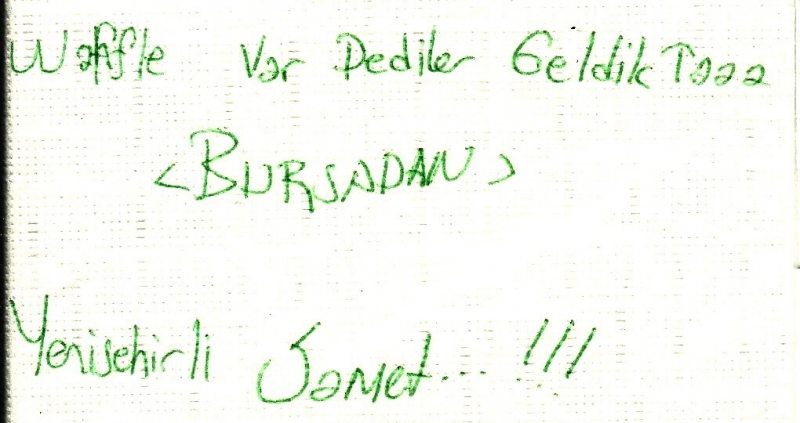 Waffle Var Dediler Geldik Taaa
<BURSADAN>
Yenisehirli Samet... !!!